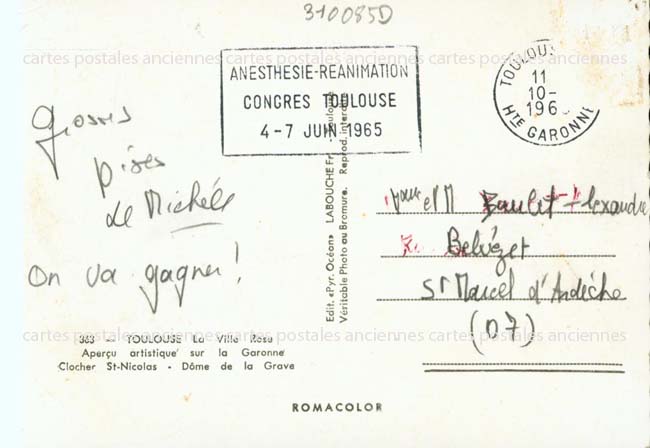 310085D
cartes postales anciennes cartes postales anciennes cartes postales anciennes
ANESTHESIE-REANIMATION
CONGRES TOULOUSE
4-7 JUIN 1965
TOULOUS
11
10-
196
HTE GARONNE
grosses
bises
de Michéle
On va gagner!
Edit. «Pyr. Océan» LABOUCHE Fr. Toulouse
Véritable Photo au Bromure. Reprod. interdite
et M Baulet-Alexandre
Belvézet
St Marcel d'Ardèche
(07)
cartes postales anciennes cartes postales anciennes cartes postales anciennes
363 — TOULOUSE La Ville Rose
Aperçu artistique sur la Garonne
Clocher St-Nicolas - Dôme de la Grave
ROMACOLOR